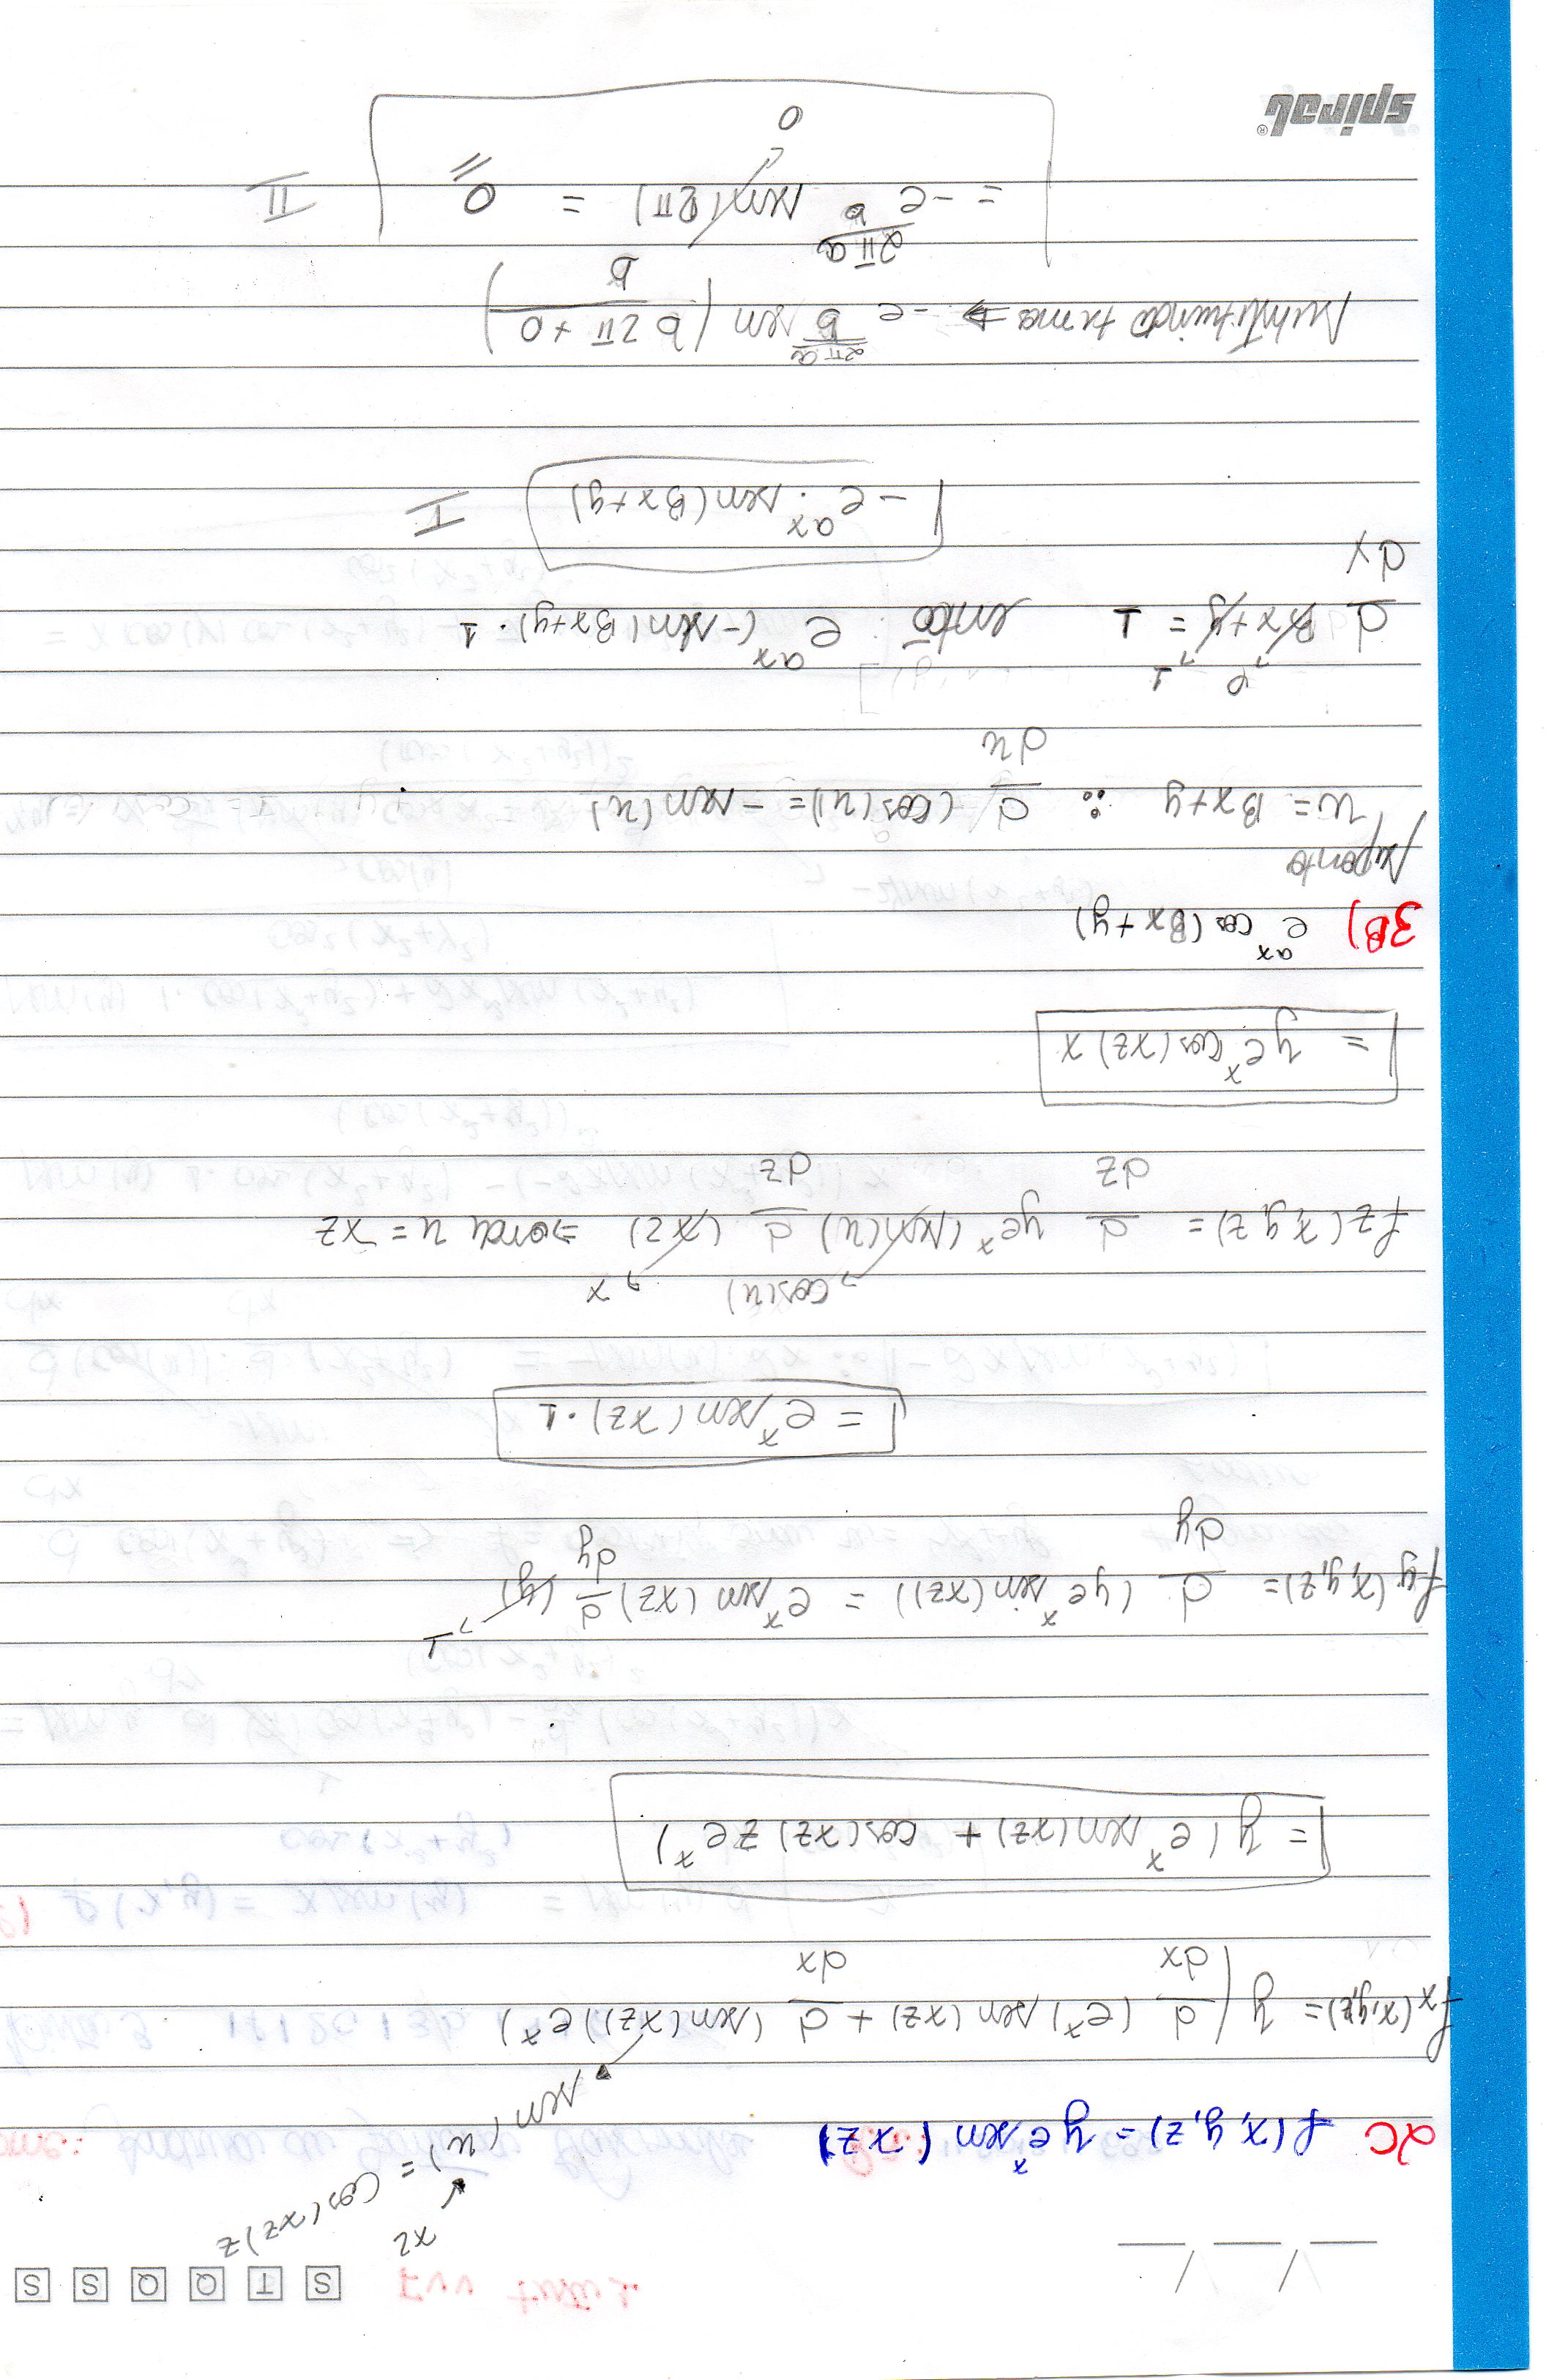 __/__/__ S T Q Q S S
xz
sen(u) = cos(xz)z
2C f(x,y,z) = y e^x sen (xz)
fx(x,y,z) = y ( d/dx (e^x) sen(xz) + d/dx (sen(xz)) e^x )
= y ( e^x sen(xz) + cos(xz) z e^x )
1
fy(x,y,z) = d/dy (y e^x sin(xz)) = e^x sen (xz) d/dy (y)
= e^x sen (xz) · 1
cos(u) x
fz(x,y,z) = d/dz y e^x (sen(u) d/dz (xz) => onde u = xz
= y e^x cos(xz) x
3B) e^ax cos(Bx+y)
suponto
u = Bx+y ∴ d/du (cos(u)) = -sen(u)
0 1
d/dy Bx+y = 1 então: e^ax (-sen(Bx+y) · 1
- e^ax · sen(Bx+y) I
substituindo temos → -e^(2πa/b) sen ( b 2π + 0 / b )
= -e^(2πa/b) sen(2π) = 0 II
0
spiral®